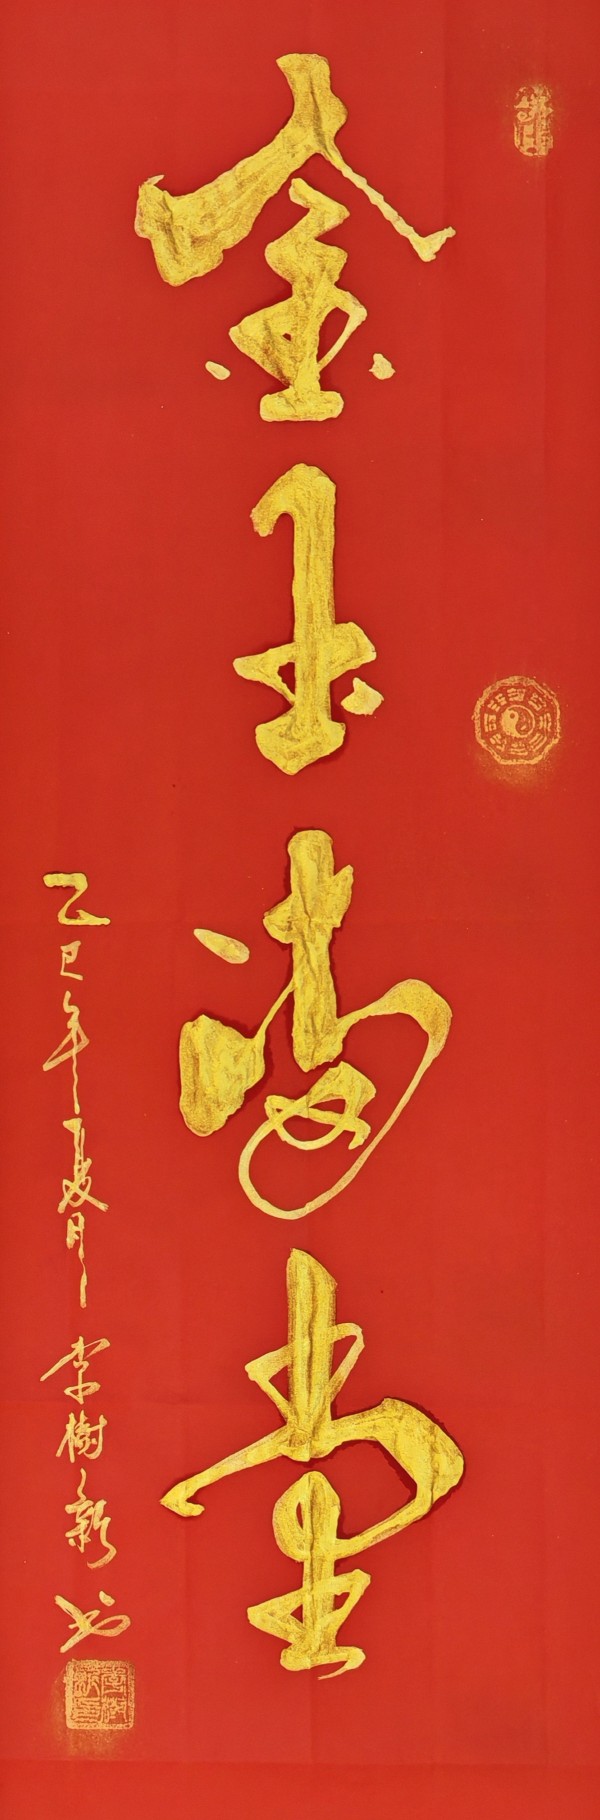 金玉满堂
乙巳年夏月李樹新书